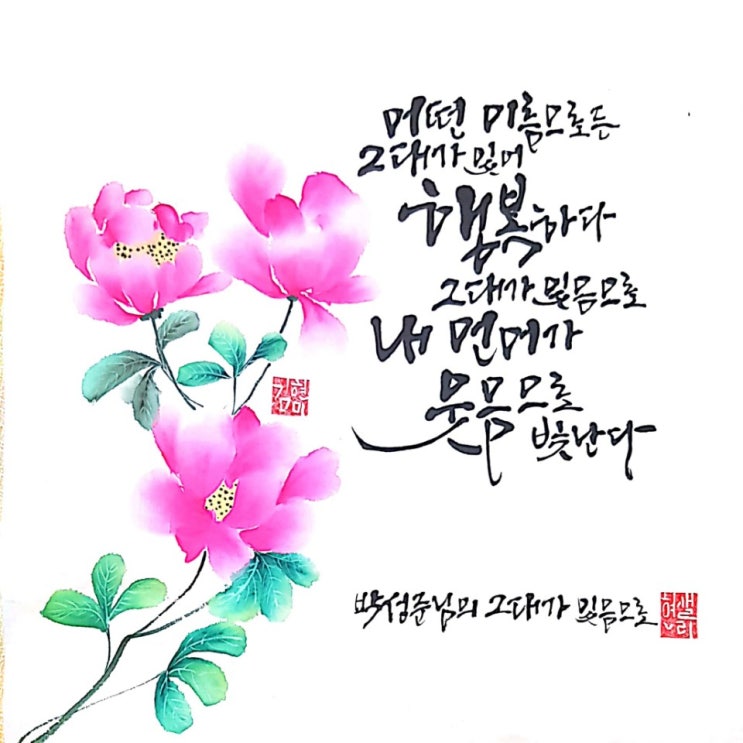 어떤 이름으로든
그대가 있어
행복하다
그대가 있음으로
내 언어가
웃음으로
빛난다
박성준님의 그대가 있음으로